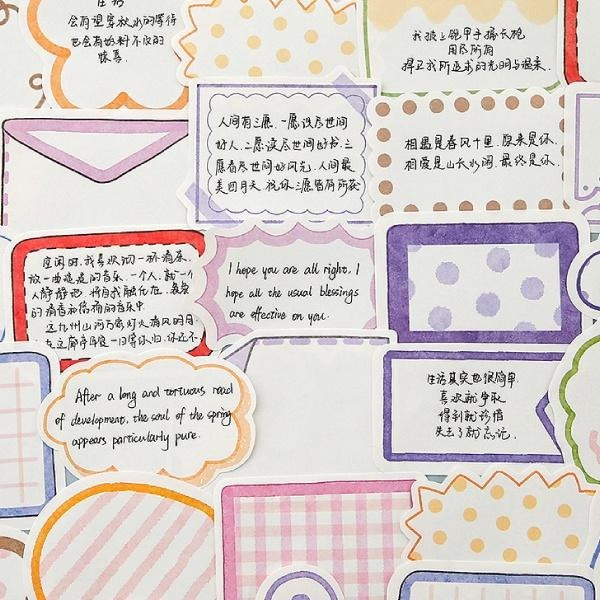 生活
会有望穿秋水的等待
也会有始料不及的
惊喜.
我披上铠甲手擒长枪
用尽所有
捍卫我所追求的光明与独来.
人间有三愿.一愿识尽世间
好人.二愿读尽世间好书.三
愿看尽世间好风光.人间最
美四月天 祝你三愿皆有所获
相遇是春风十里.原来是你.
相爱是山长水阔.最终是你.
空闲时.我喜欢沏一杯清茶.
放一曲
的音乐.一个人.就一个
人静静地.将自我融化在
的清香和
的音乐中.
这九州山河万家灯火清风明月.
I hope you are all right. I
hope all the usual blessings
are effective on you.
After a long and tortuous road
of development, the soul of the spring
appears particularly pure.
生活其实也很简单.
喜欢就争取
得到就珍惜
失去了就忘记.